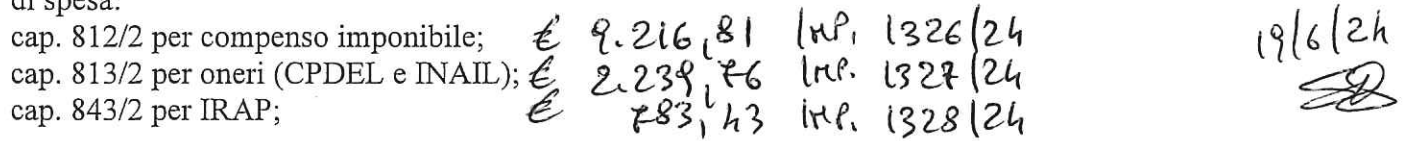 di spesa:
cap. 812/2 per compenso imponibile; € 9.216,81 IMP. 1326/24 19/6/24
cap. 813/2 per oneri (CPDEL e INAIL); € 2.239,76 IMP. 1327/24
cap. 843/2 per IRAP; € 783,43 IMP. 1328/24